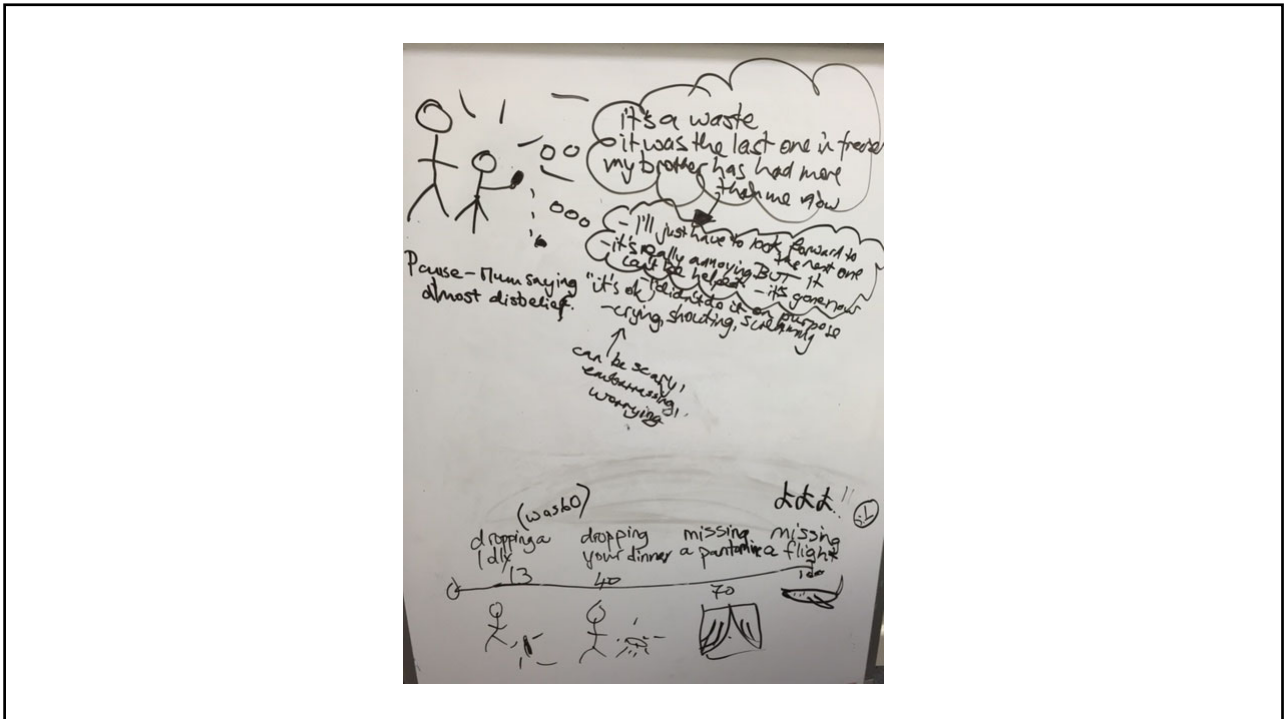 it's a waste
it was the last one in freezer
my brother has had more
than me now
- I'll just have to look forward to
the next one
- it's really annoying BUT it
can't be helped - it's gone now
"it's ok, I didn't do it on purpose
- crying, shouting, screaming
Pause - Mum saying
almost disbelief.
can be scary,
embarrassing,
worrying
(was 60)
dropping a
lolly
13
dropping
your dinner
40
missing
a pantomime
70
missing
a flight
100